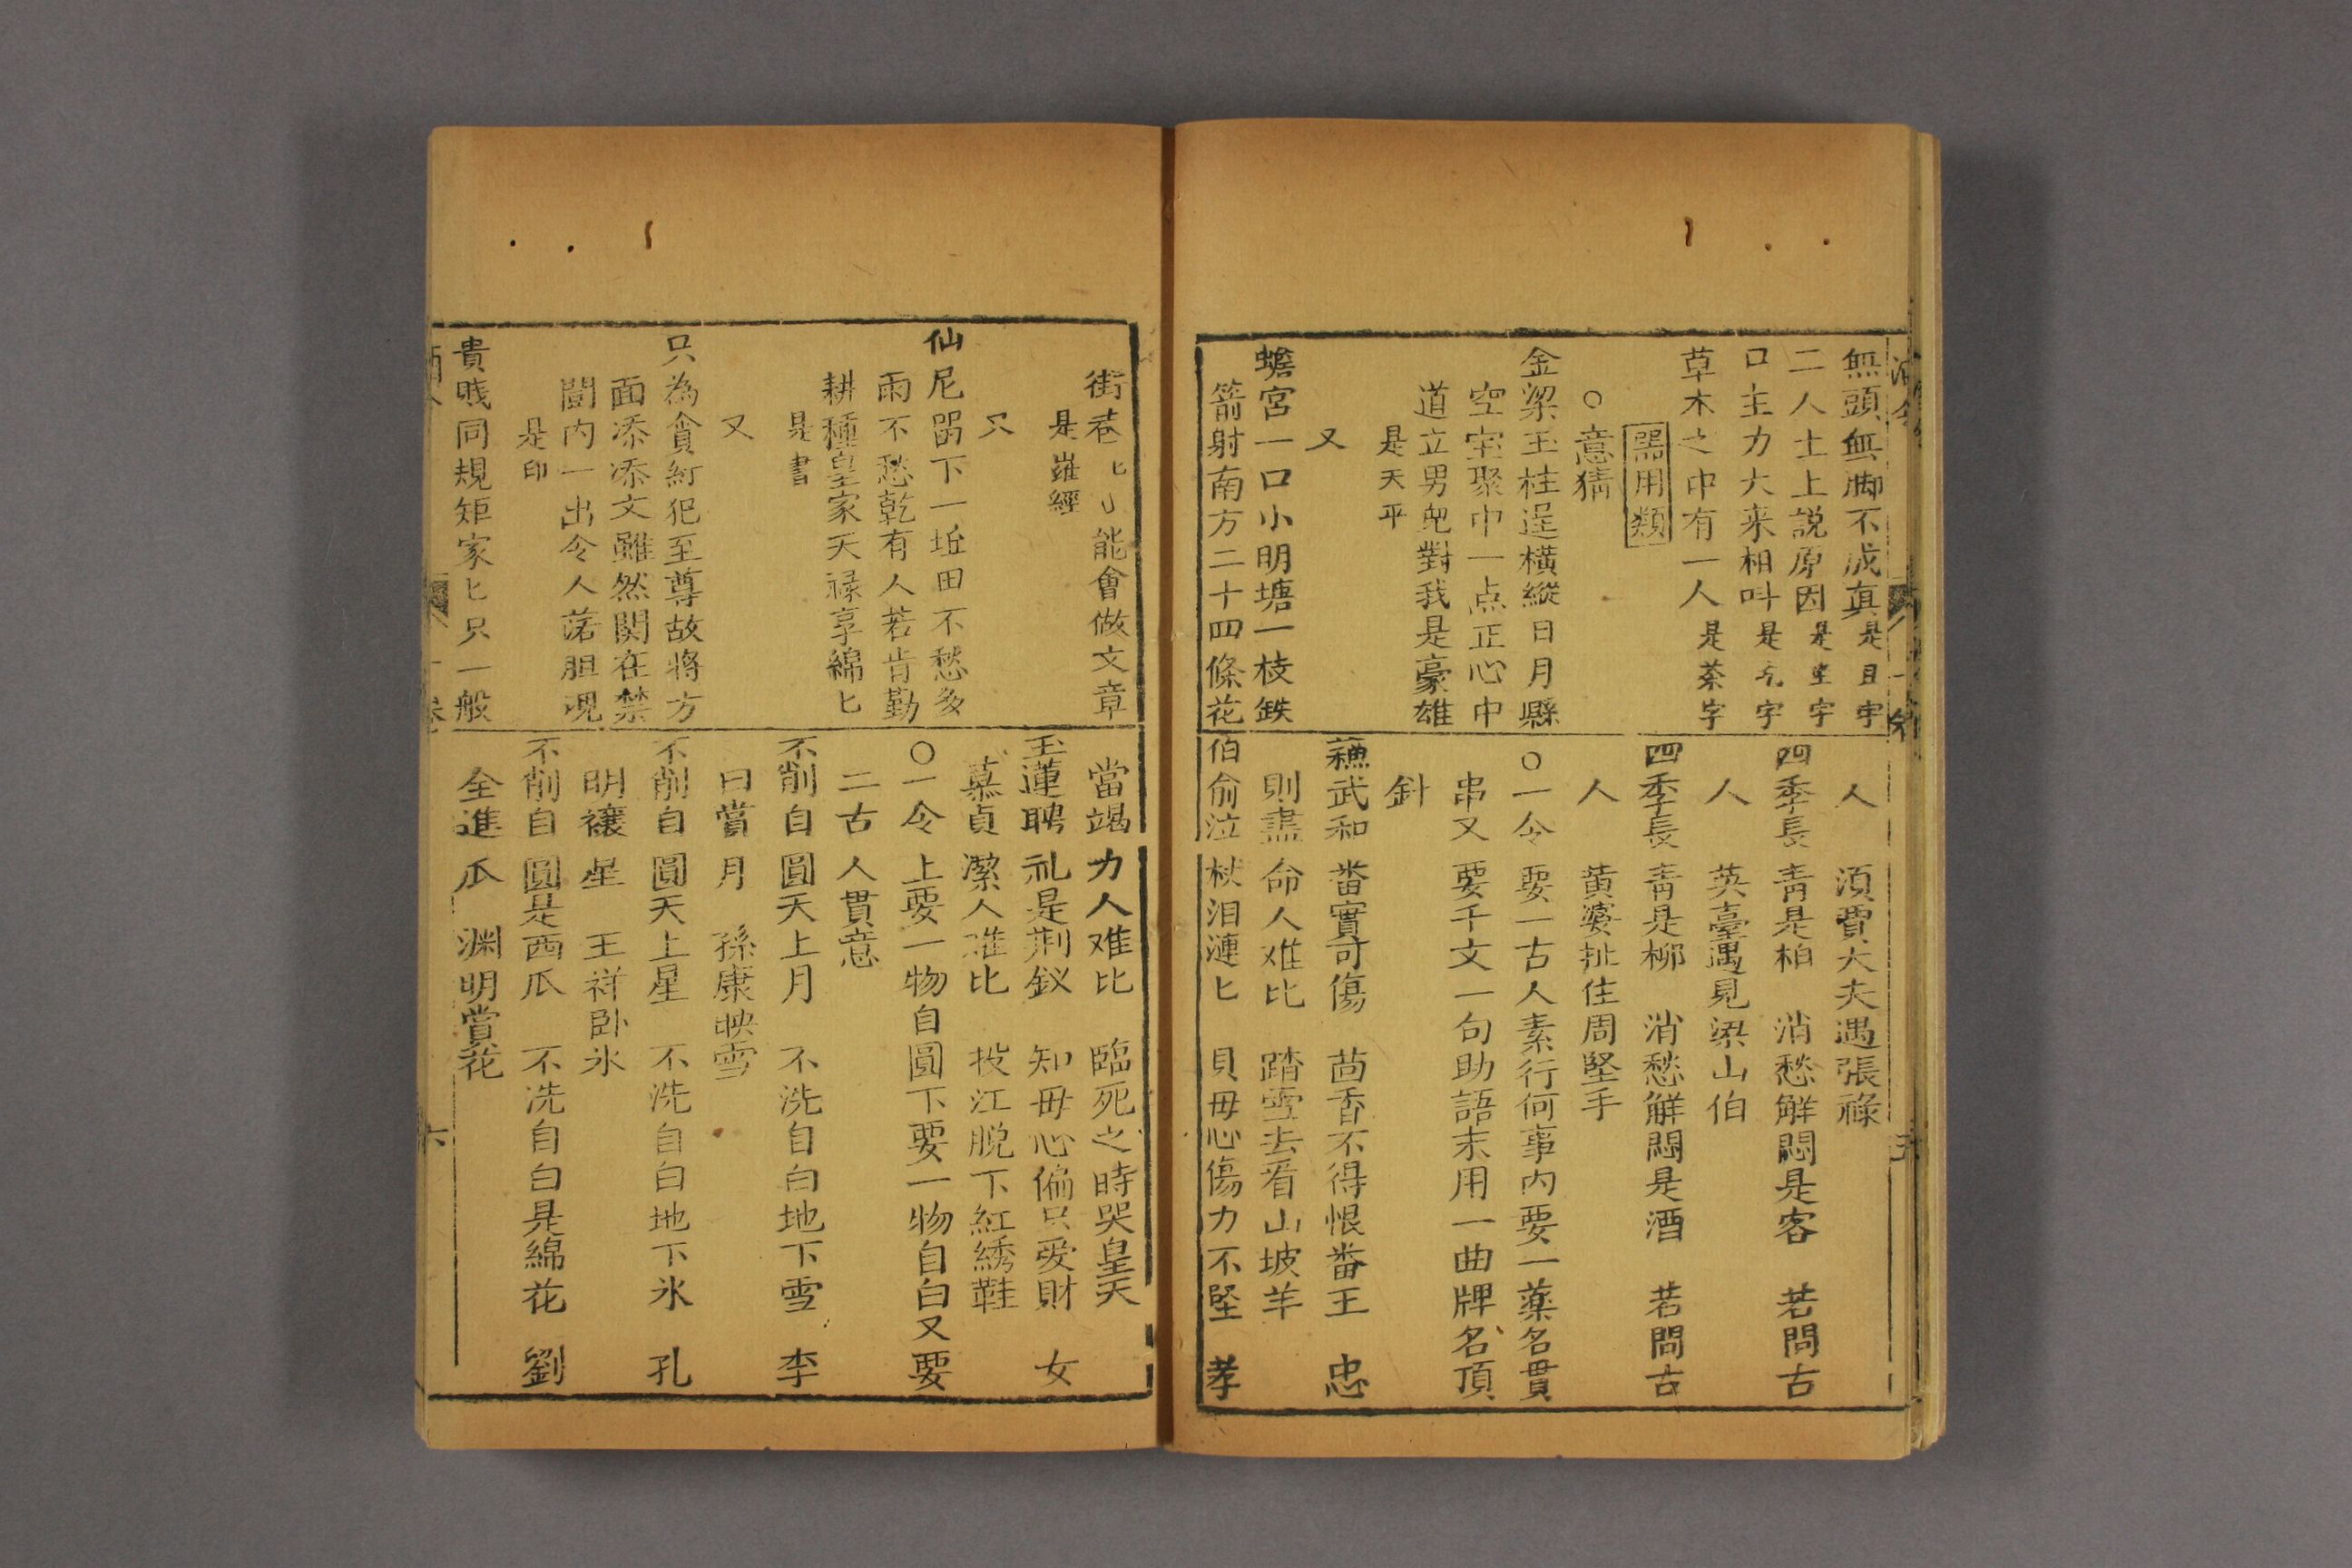 無頭無脚不成眞是且字
二人土上說原因是坐字
口主力大来相叫是字
草木之中有一人是茶字
器用類
○意猜
金梁玉柱逞橫縱日月懸
空宿聚中一点正心中
道立男児對我是豪雄
是天平
又
蟾宮一口小明塘一枝鉄
箭射南方二十四條花
人 須賈大夫遇張祿
四季長青是柏 消愁解悶是客 若問古
人 英臺遇見梁山伯
四季長青是柳 消愁解悶是酒 若問古
人 黄婆扯住周堅手
○一令要一古人素行何事內要一藥名貫
串又要千文一句助語末用一曲牌名頂
針
蘇武和番實可傷 茴香不得恨番王 忠
則盡命人难比 踏雪去看山坡羊
伯俞泣杖泪漣匕 貝毋心傷力不堅 孝
街巷匕リ能會做文章
是羅經
又
仙尼留下一坵田不愁多
雨不愁乾有人若肯勤
耕種皇家天祿享綿匕
是書
又
只為貪紅犯至尊故將方
面添添文雖然関在禁
闈内一出令人落胆魂
是印
貴賤同規矩家匕只一般
當竭力人难比 臨死之時哭皇天
玉蓮聘礼是荆釵 知毋心偏只愛財 女
慕貞潔人难比 投江脱下紅綉鞋
○一令上要一物自圓下要一物自白又要
二古人貫意
不削自圓天上月 不洗自白地下雪 李
白賞月 孫康映雪
不削自圓天上星 不洗自白地下氷 孔
明禳星 王祥卧氷
不削自圓是西瓜 不洗自白是綿花 劉
全進瓜 渊明賞花
六